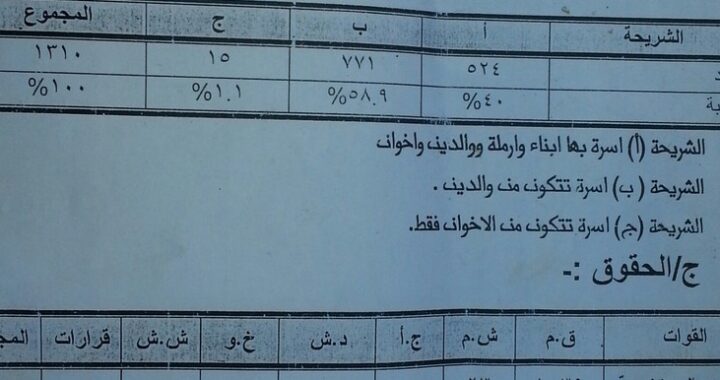 الشريحة أ ب ج المجموع
٥٢٤ ٧٧١ ١٥ ١٣١٠
%٤٠ %٥٨.٩ %١.١ %١٠٠
الشريحة (أ) اسرة بها ابناء وارملة ووالدين واخوان
الشريحة (ب) اسرة تتكون من والدين .
الشريحة (ج) اسرة تتكون من الاخوان فقط.
ج/الحقوق :-
القوات ق.م ش.م ج.أ د.ش خ.و ش.ش قرارات